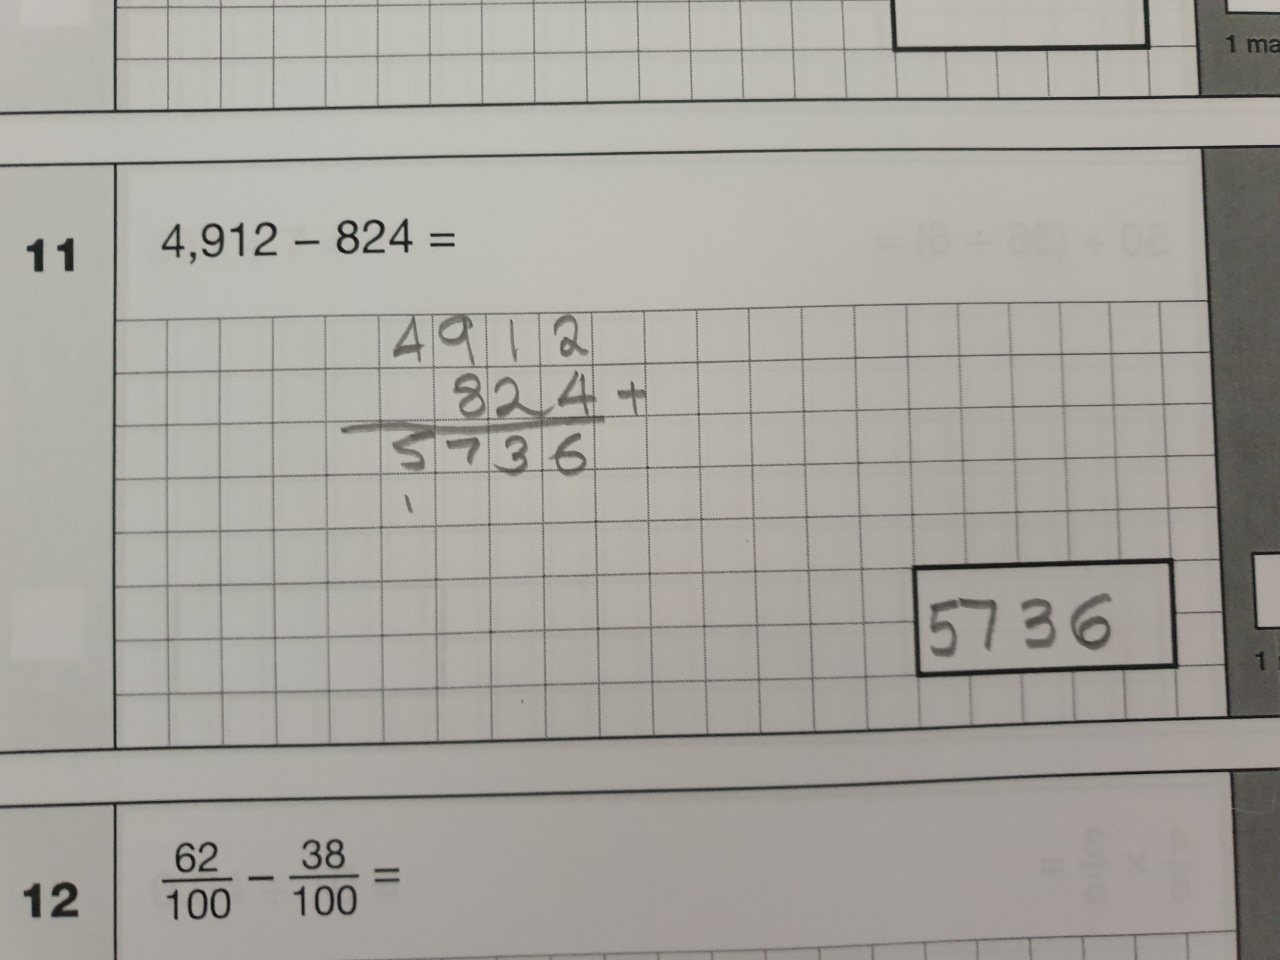 1 ma
11
4,912 – 824 =
4912
824 +
5736
1
5736
1
12
62/100 – 38/100 =